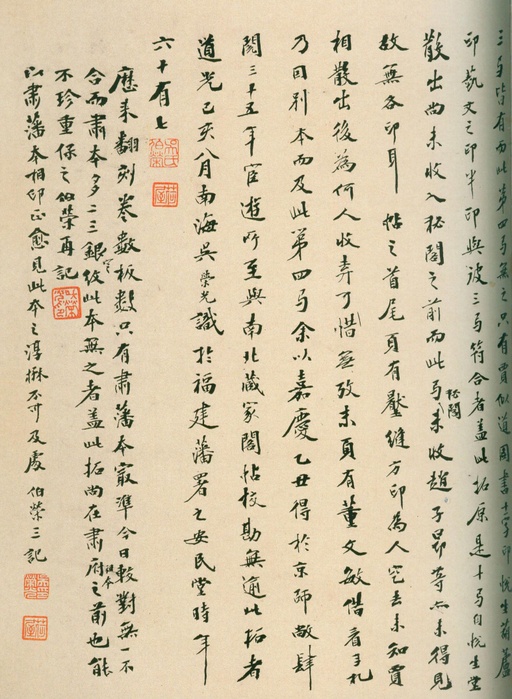 三弓皆有而此第四弓無之只有賈似道圖書十字印悅生葫蘆
印藝文之印半印與彼三弓符合者蓋此拓原是十弓自悅生堂
散出尚未收入秘閣之前而此弓未收趙子昂等亦未得見
秘閣
故無各印耳 帖之首尾頁有壓縫方印為人挖去未知賈
相散出後為何人收弆可惜無攷末頁有董文敏借看手札
乃因別本而及此第四弓余以嘉慶乙丑得於京師敝肆
閱三十五年宦遊所至與南北藏家閣帖校勘無逾此拓者
道光己亥八月南海吳榮光識於福建藩署之安民堂時年
六十有七
歷來翻刻卷數板數只有肅藩本最準今日較對無一不
合而肅本多二三銀錠此本無之者蓋此拓尚在肅府之前也能
不珍重保之 伯榮再記
以肅藩本相印正愈見此本之淳楙不可及處 伯榮三記